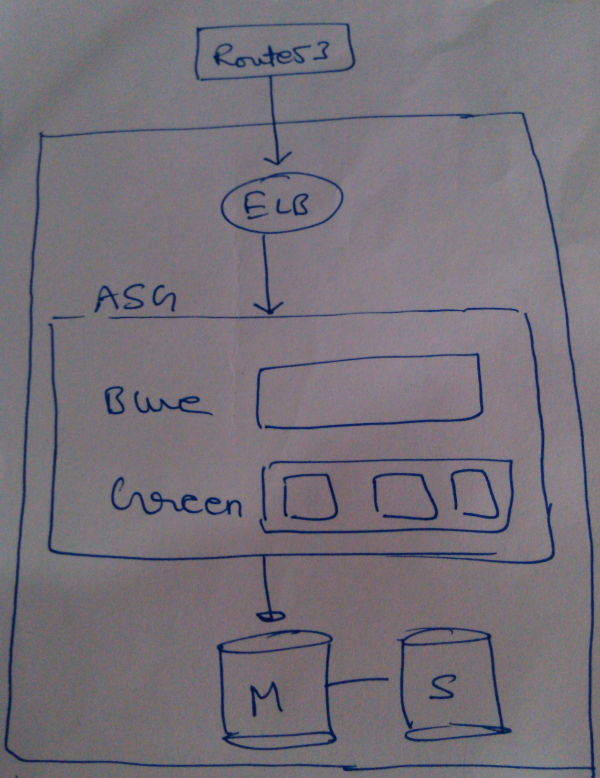 Route53
ELB
ASG
Blue
Green
M
S